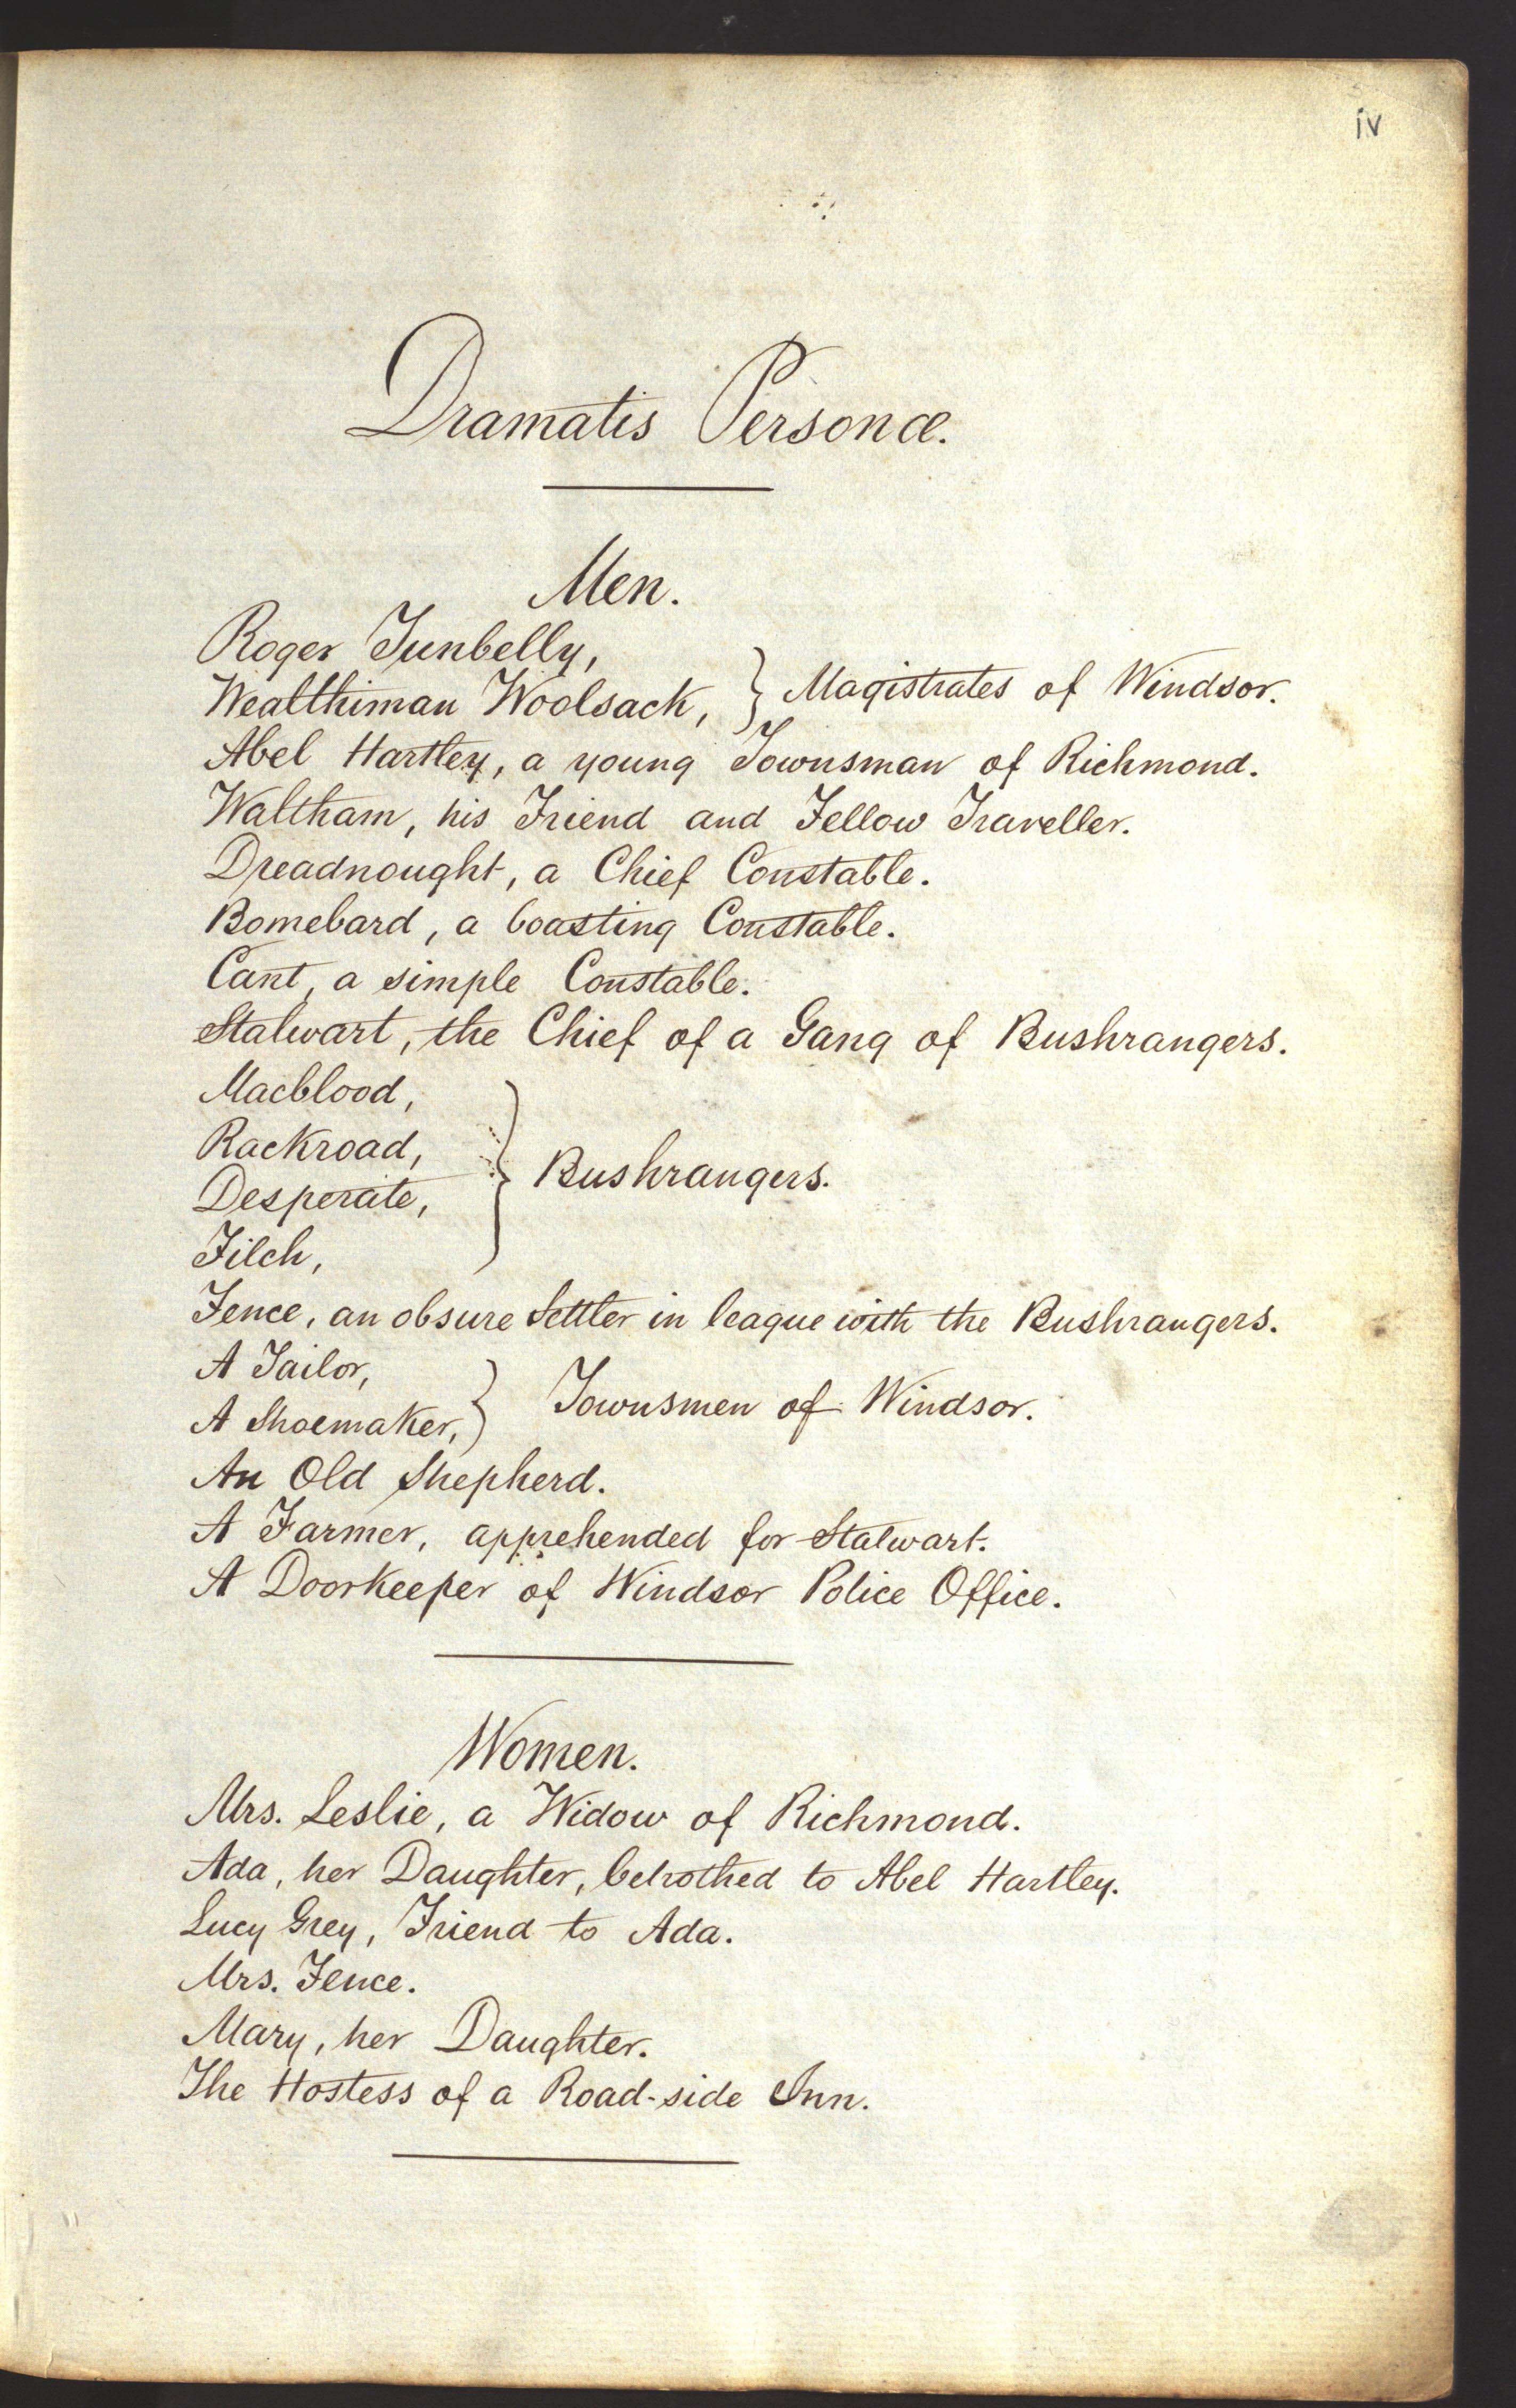 iv
Dramatis Personæ.
Men.
Roger Tunbelly,
Wealthiman Woolsack, } Magistrates of Windsor.
Abel Hartley, a young Townsman of Richmond.
Waltham, his Friend and Fellow Traveller.
Dreadnought, a Chief Constable.
Bomebard, a boasting Constable.
Cant, a simple Constable.
Stalwart, the Chief of a Gang of Bushrangers.
Macblood,
Rackroad,
Desperate, } Bushrangers.
Filch,
Fence, an obsure Settler in league with the Bushrangers.
A Tailor,
A Shoemaker, } Townsmen of Windsor.
An Old Shepherd.
A Farmer, apprehended for Stalwart.
A Doorkeeper of Windsor Police Office.
Women.
Mrs. Leslie, a Widow of Richmond.
Ada, her Daughter, betrothed to Abel Hartley.
Lucy Grey, Friend to Ada.
Mrs. Fence.
Mary, her Daughter.
The Hostess of a Road-side Inn.